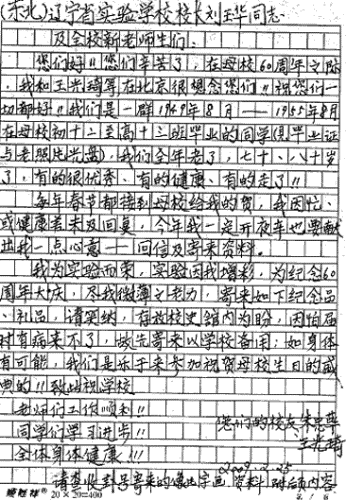 (东北)辽宁省实验学校校长刘玉华同志
及全校新老师生们:
您们好!!您们辛苦了,在母校60周年之际
,我和王兴琦等在北京很想念您们!!祝您们一
切都好!!我们是一群1949年8月——1955年8月
在母校初十二至高十三班毕业的同学(见毕业证
与老照片光盘),我们全年老了,七十、八十岁
了,有的很优秀、有的健康、有的走了!!
每年春节都接到母校给我的贺,我因忙、
或健康差未及回复,今年我一定开夜车也要献
出我一点心意——回信及寄来资料。
我为实验而荣,实验因我增彩,为纪念60
周年大庆,尽我微薄之老力,寄来如下纪念品
、礼品,请笑纳,存放校史馆内为盼,因怕届
时有病来不了,故先寄来以学校备用;如身体
有可能,我们是乐于来参加祝贺母校生日的盛
典的!!致此祝学校
老师们工作顺利!!
同学们学习进步!!
全体身体健康!!!
您们的校友
2009.2.25
20×20=400
请查收封号寄来的 字画 资料 附后内容